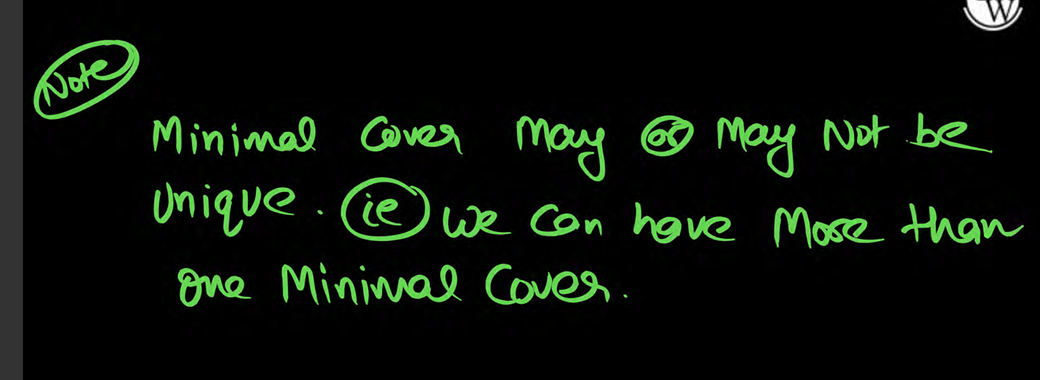 W
Note
Minimal Cover May or May Not be
Unique. ie We Can have More than
one Minimal Cover.